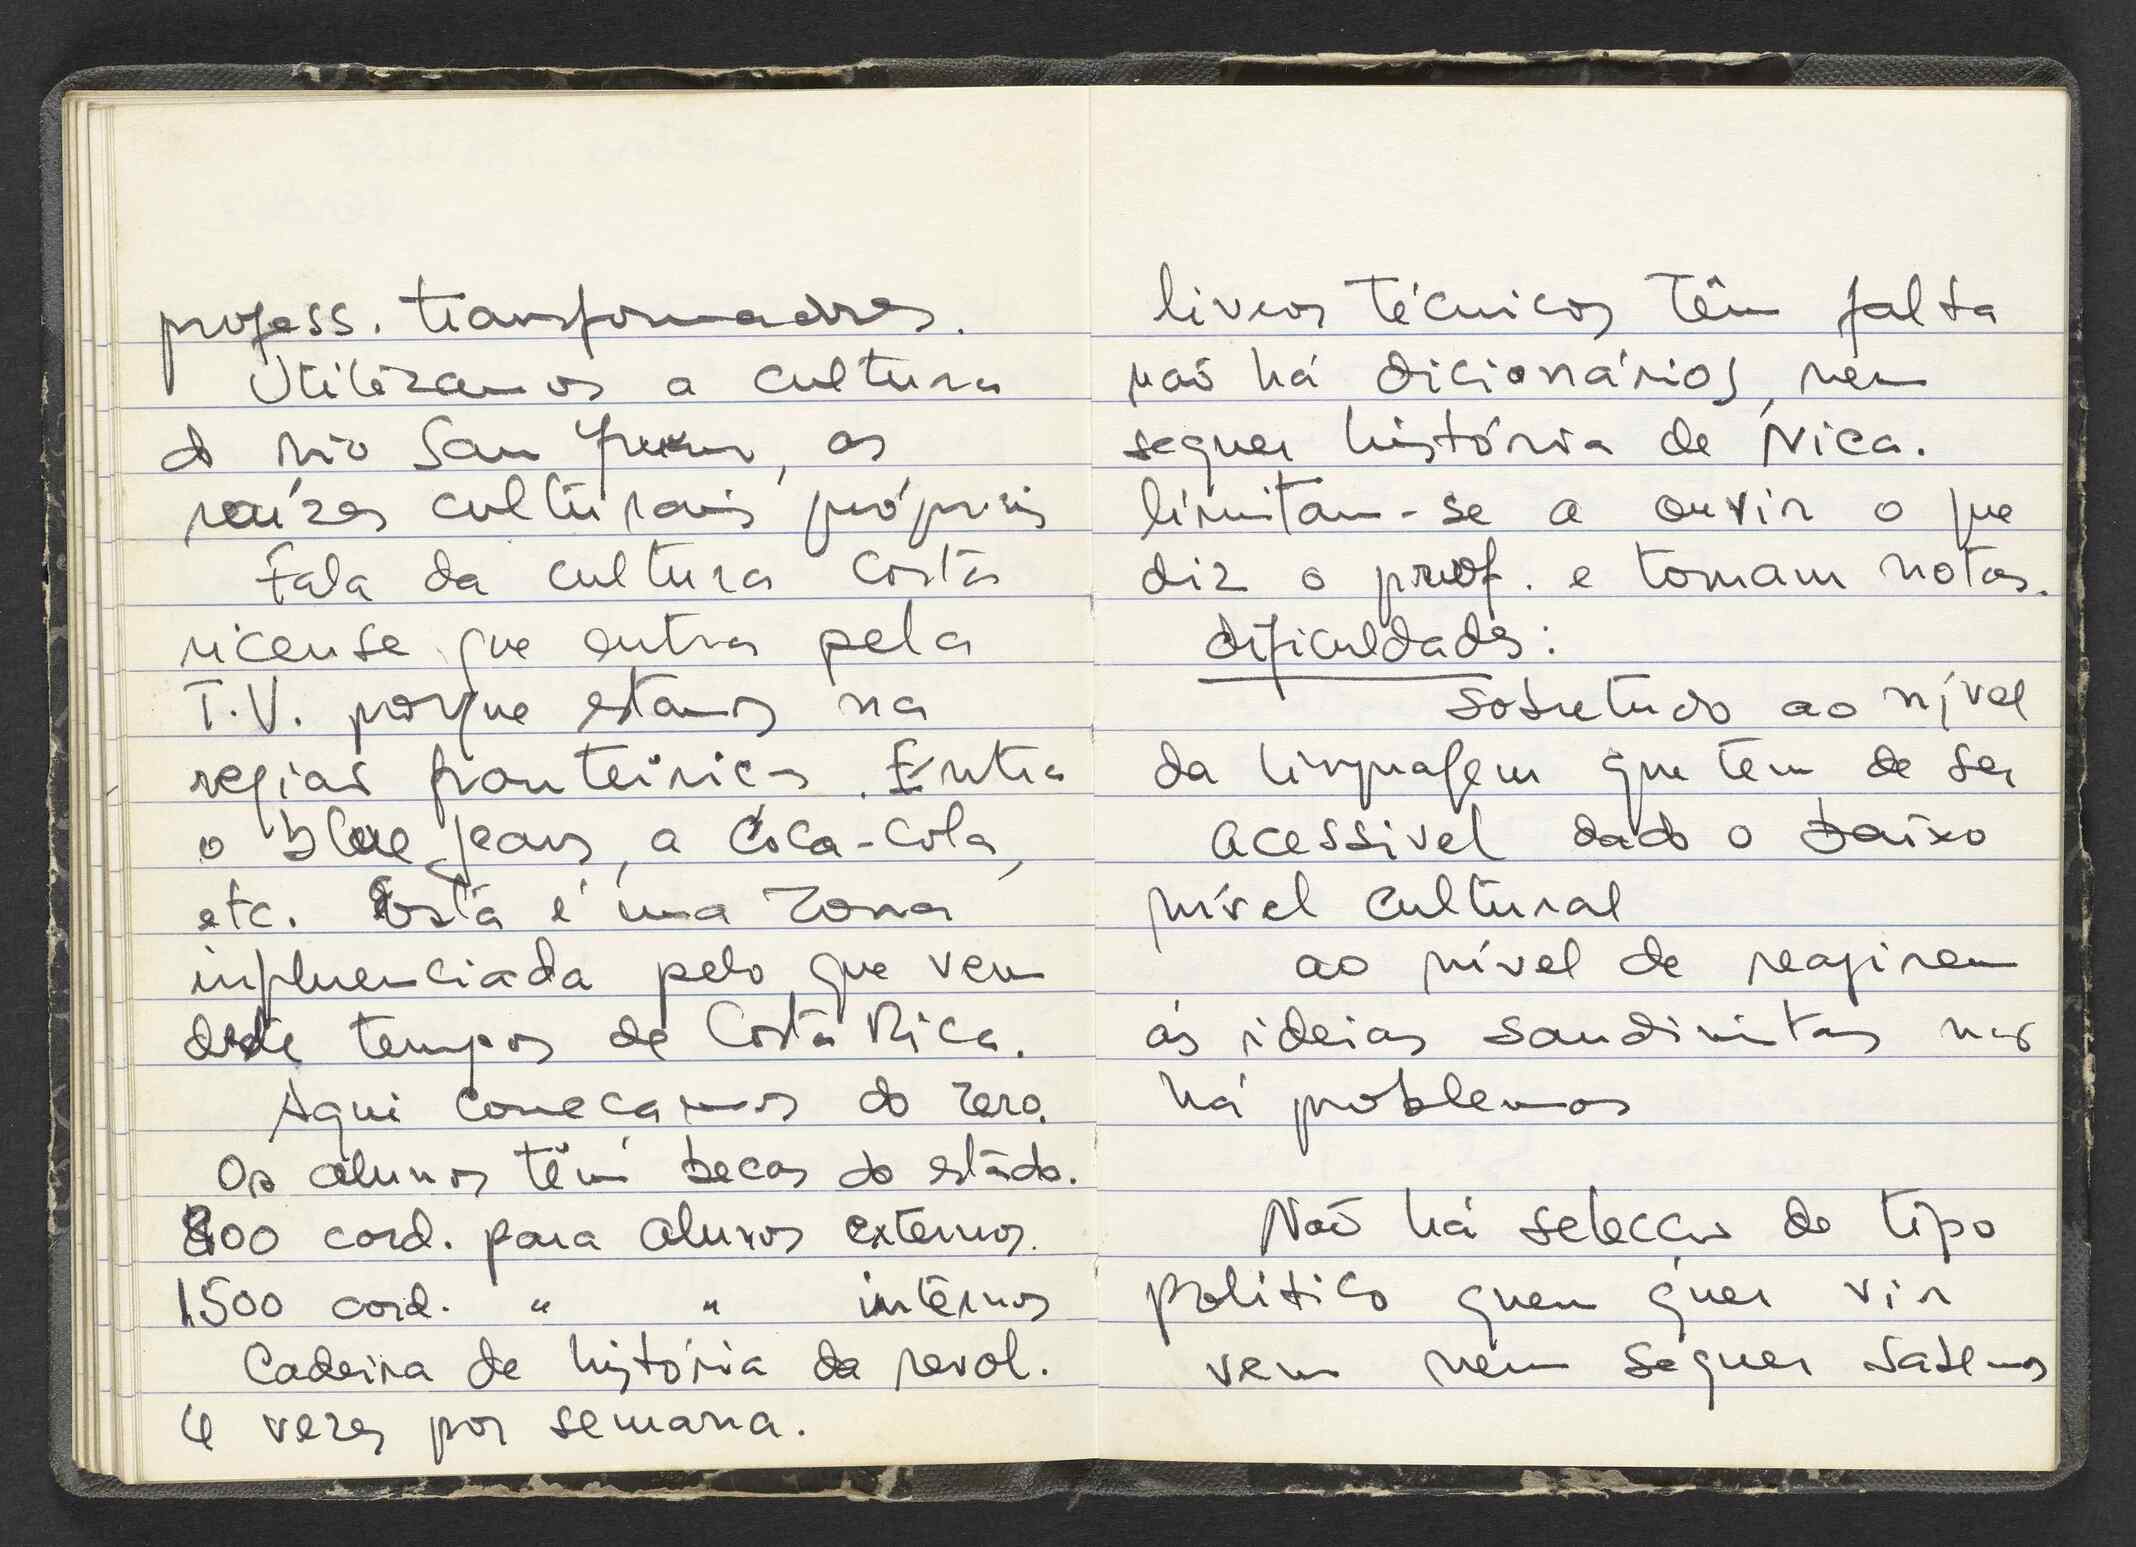 profess. transformadores.
Utilizamos a cultura
do rio San Juan, as
raízes culturais próprias
Fala da cultura costa
ricense que entra pela
T.V. porque estamos na
região fronteiriça. Entra
o blue jeans, a Coca-Cola,
etc. Esta é uma zona
influenciada pelo que vem
desde tempos de Costa Rica.
Aqui começamos do zero.
Os alunos têm becas do estado.
800 cord. para alunos externos.
1.500 cord. " " internos
Cadeira de história da revol.
4 vezes por semana.
livros técnicos têm falta
não há dicionários, nem
sequer história de Nica.
limitam-se a ouvir o que
diz o prof. e tomam notas.
dificuldades:
sobretudo ao nível
da linguagem que tem de ser
acessivel dado o baixo
nível cultural
ao nível de reagirem
ás ideias sandinistas não
há problemas
Não há selecção de tipo
político quem quer vir
vem nem sequer sabemos